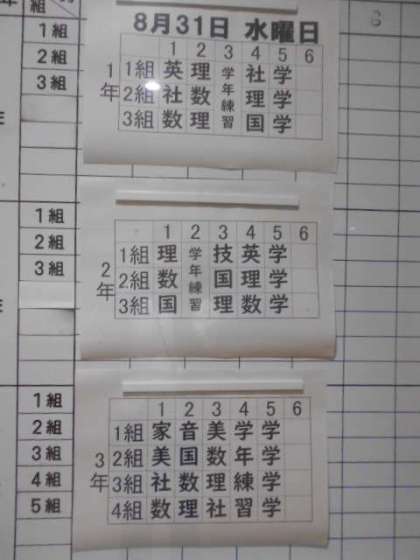 年
組
1組
2組
3組
8月31日 水曜日
1 2 3 4 5 6
1年
1組 英 理 学 社 学
2組 社 数 年練 理 学
3組 数 理 習 国 学
1組
2組
3組
1 2 3 4 5 6
2年
1組 理 学 技 英 学
2組 数 年練 国 理 学
3組 国 習 理 数 学
1組
2組
3組
4組
5組
1 2 3 4 5 6
3年
1組 家 音 美 学 学
2組 美 国 数 年 学
3組 社 数 理 練 学
4組 数 理 社 習 学